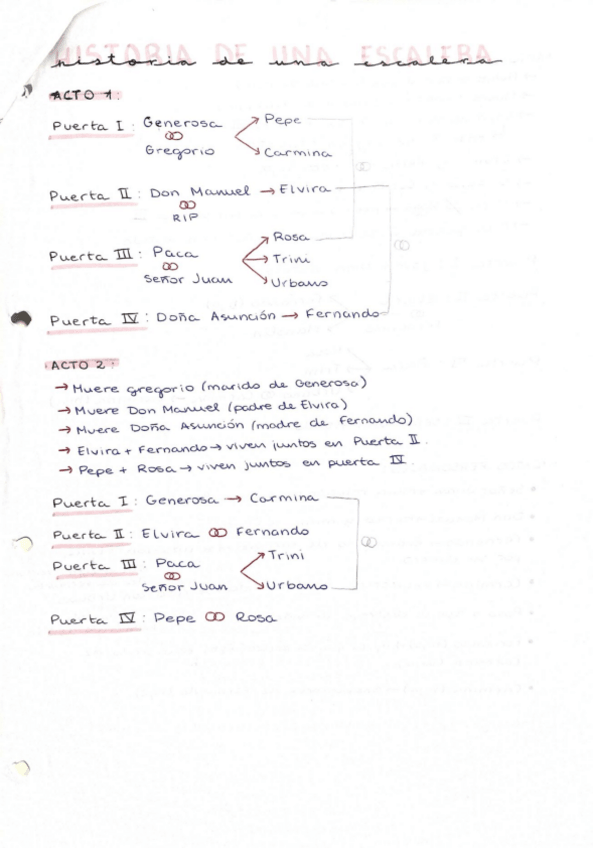 HISTORIA DE UNA ESCALERA
historia de una escalera
ACTO 1:
Puerta I: Generosa → Pepe
Gregorio → Carmina
Puerta II: Don Manuel → Elvira
RIP
Puerta III: Paca → Rosa
→ Trini
Señor Juan → Urbano
Puerta IV: Doña Asunción → Fernando
ACTO 2:
→ Muere gregorio (marido de Generosa)
→ Muere Don Manuel (padre de Elvira)
→ Muere Doña Asunción (madre de Fernando)
→ Elvira + Fernando → viven juntos en Puerta II.
→ Pepe + Rosa → viven juntos en puerta IV
Puerta I: Generosa → Carmina
Puerta II: Elvira Fernando
Puerta III: Paca → Trini
Señor Juan → Urbano
Puerta IV: Pepe Rosa